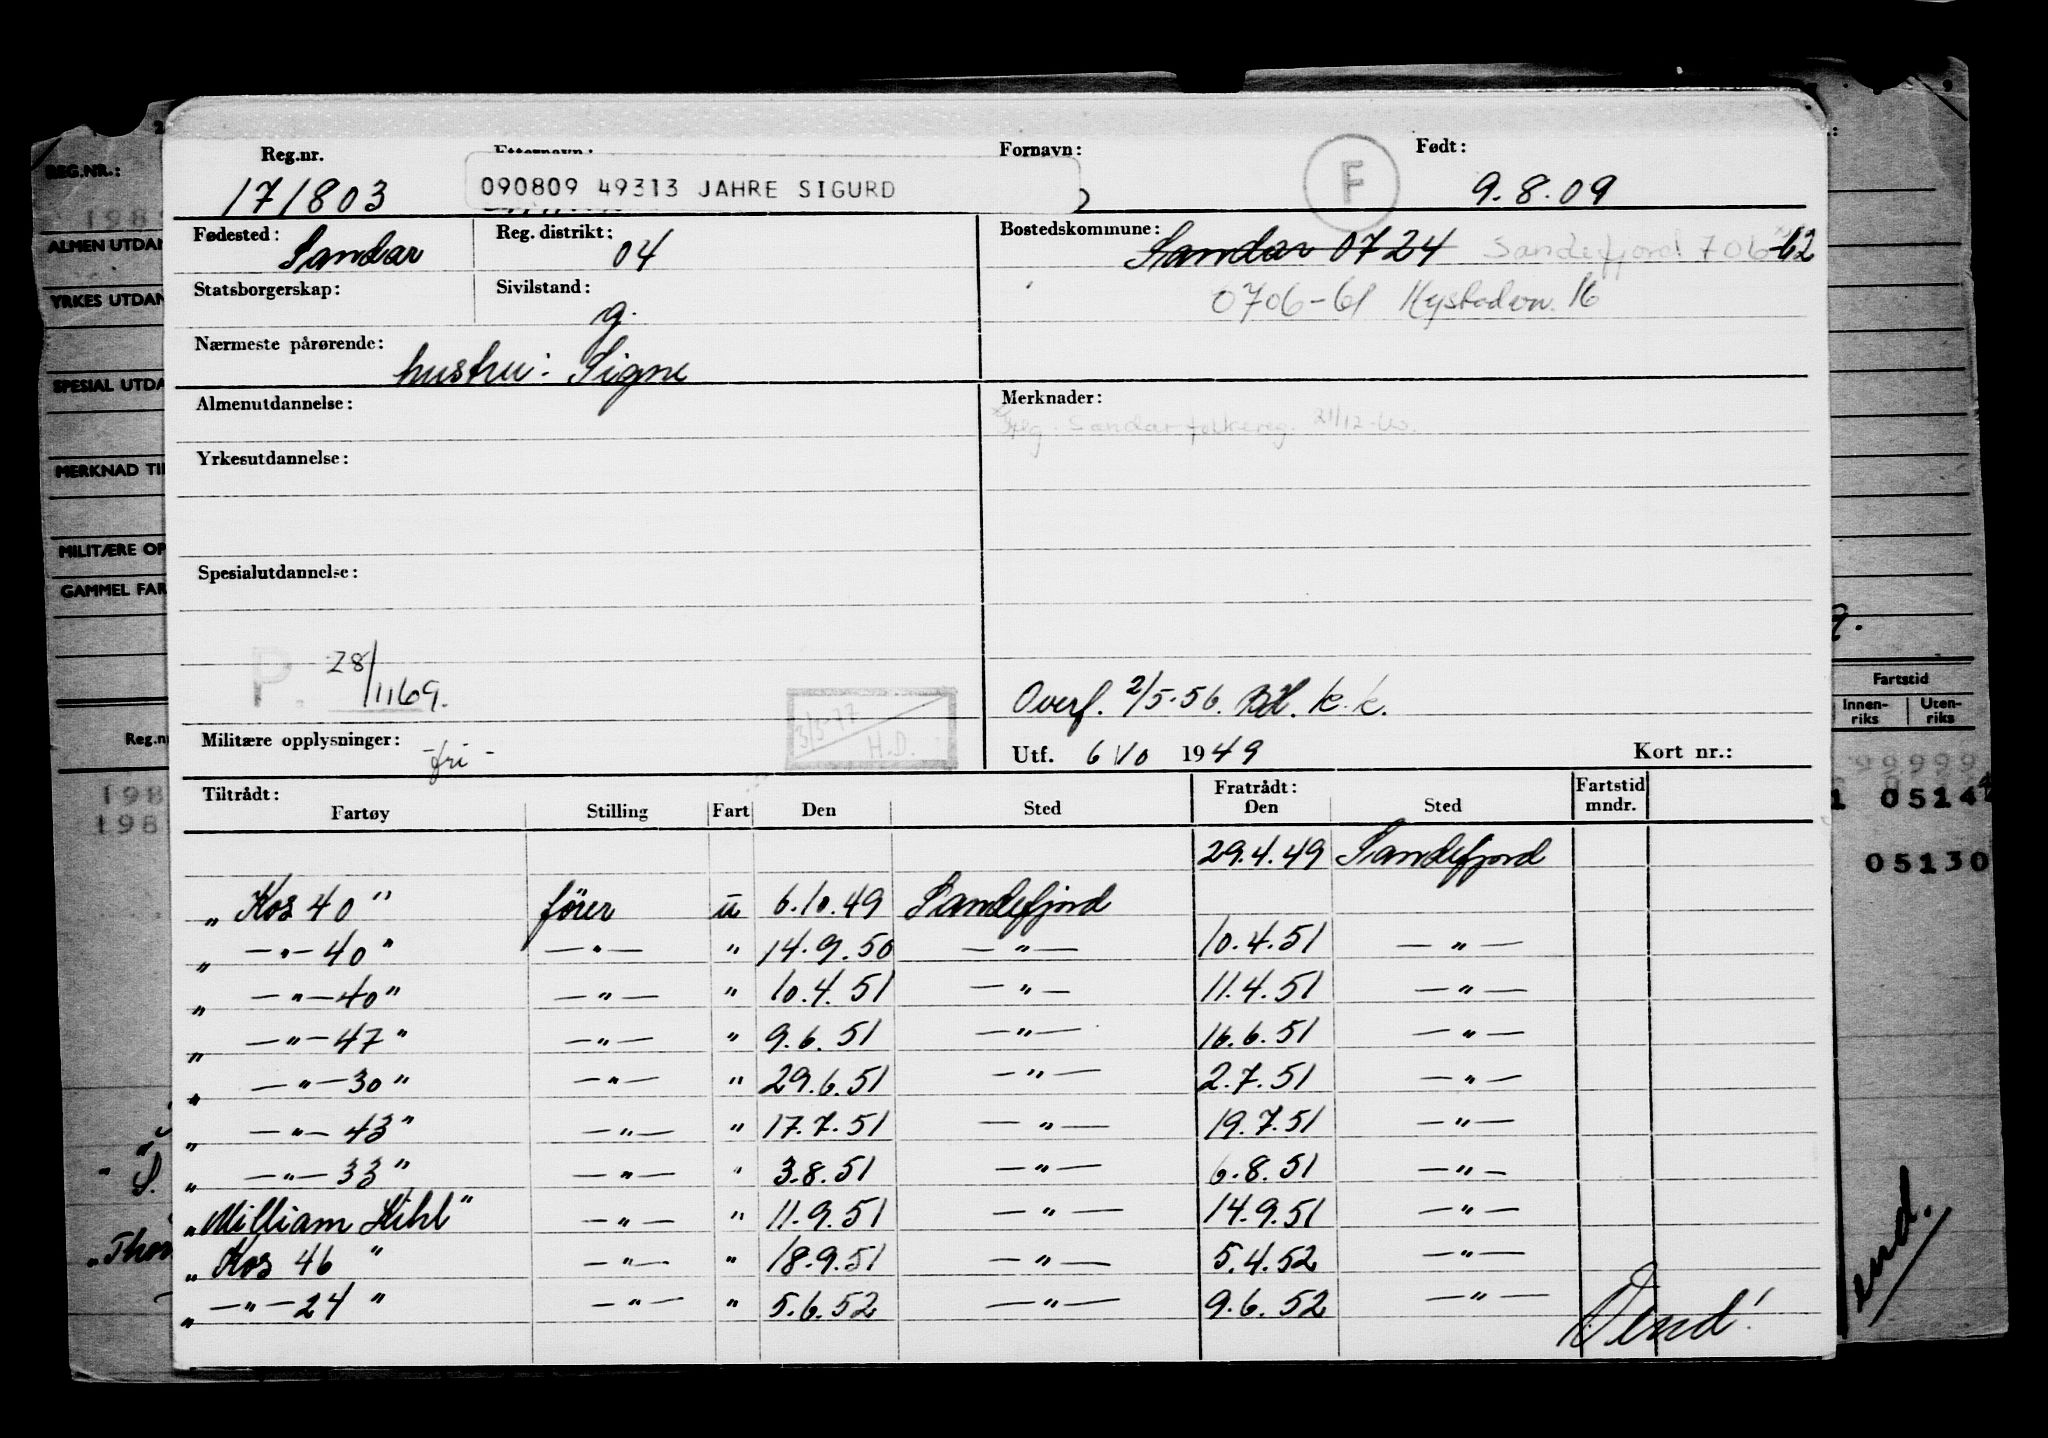 Reg.nr. Fornavn: Født:
171803 090809 49313 JAHRE SIGURD F 9.8.09
Fødested: Reg. distrikt: Bostedskommune:
Sandar 04 Sandar 0724 Sandefjord 706-62
Statsborgerskap: Sivilstand:
g. 0706-61 16
Nærmeste pårørende:
hustru: Signe
Almenutdannelse: Merknader:
Sandar folkereg. 21/12-
Yrkesutdannelse:
Spesialutdannelse:
P. 28/1169.
Overf. 2/5-56. k.k.
3/5-77 H.D.
Militære opplysninger: -fri- Utf. 6/10 1949 Kort nr.:
Tiltrådt: Fratrådt: Fartstid
Fartøy Stilling Fart Den Sted Den Sted mndr.
29.4.49 Sandefjord
„ Kos 40 " fører u 6.10.49 Sandefjord
„ —"— 40 " —"— " 14.9.50 —"— 10.4.51 —"—
„ —"— 40 " —"— " 10.4.51 —"— 11.4.51 —"—
„ —"— 47 " —"— " 9.6.51 —"— 16.6.51 —"—
„ —"— 30 " —"— " 29.6.51 —"— 2.7.51 —"—
„ —"— 43 " —"— " 17.7.51 —"— 19.7.51 —"—
„ —"— 33 " —"— " 3.8.51 —"— 6.8.51 —"—
„ William Wihl " —"— " 11.9.51 —"— 14.9.51 —"—
„ Kos 46 " —"— " 18.9.51 —"— 5.4.52 —"—
„ —"— 24 " —"— " 5.6.52 —"— 9.6.52 —"—
Vend!
REG.NR.:
198
ALMEN UTDAN
YRKES UTDAN
SPESIAL UTDA
MERKNAD TI
MILITÆRE OP
GAMMEL FAR
Reg.n
198
198
„Thor
Fartstid
Innen-riks Uten-riks
99999
1 05144
05130
end.